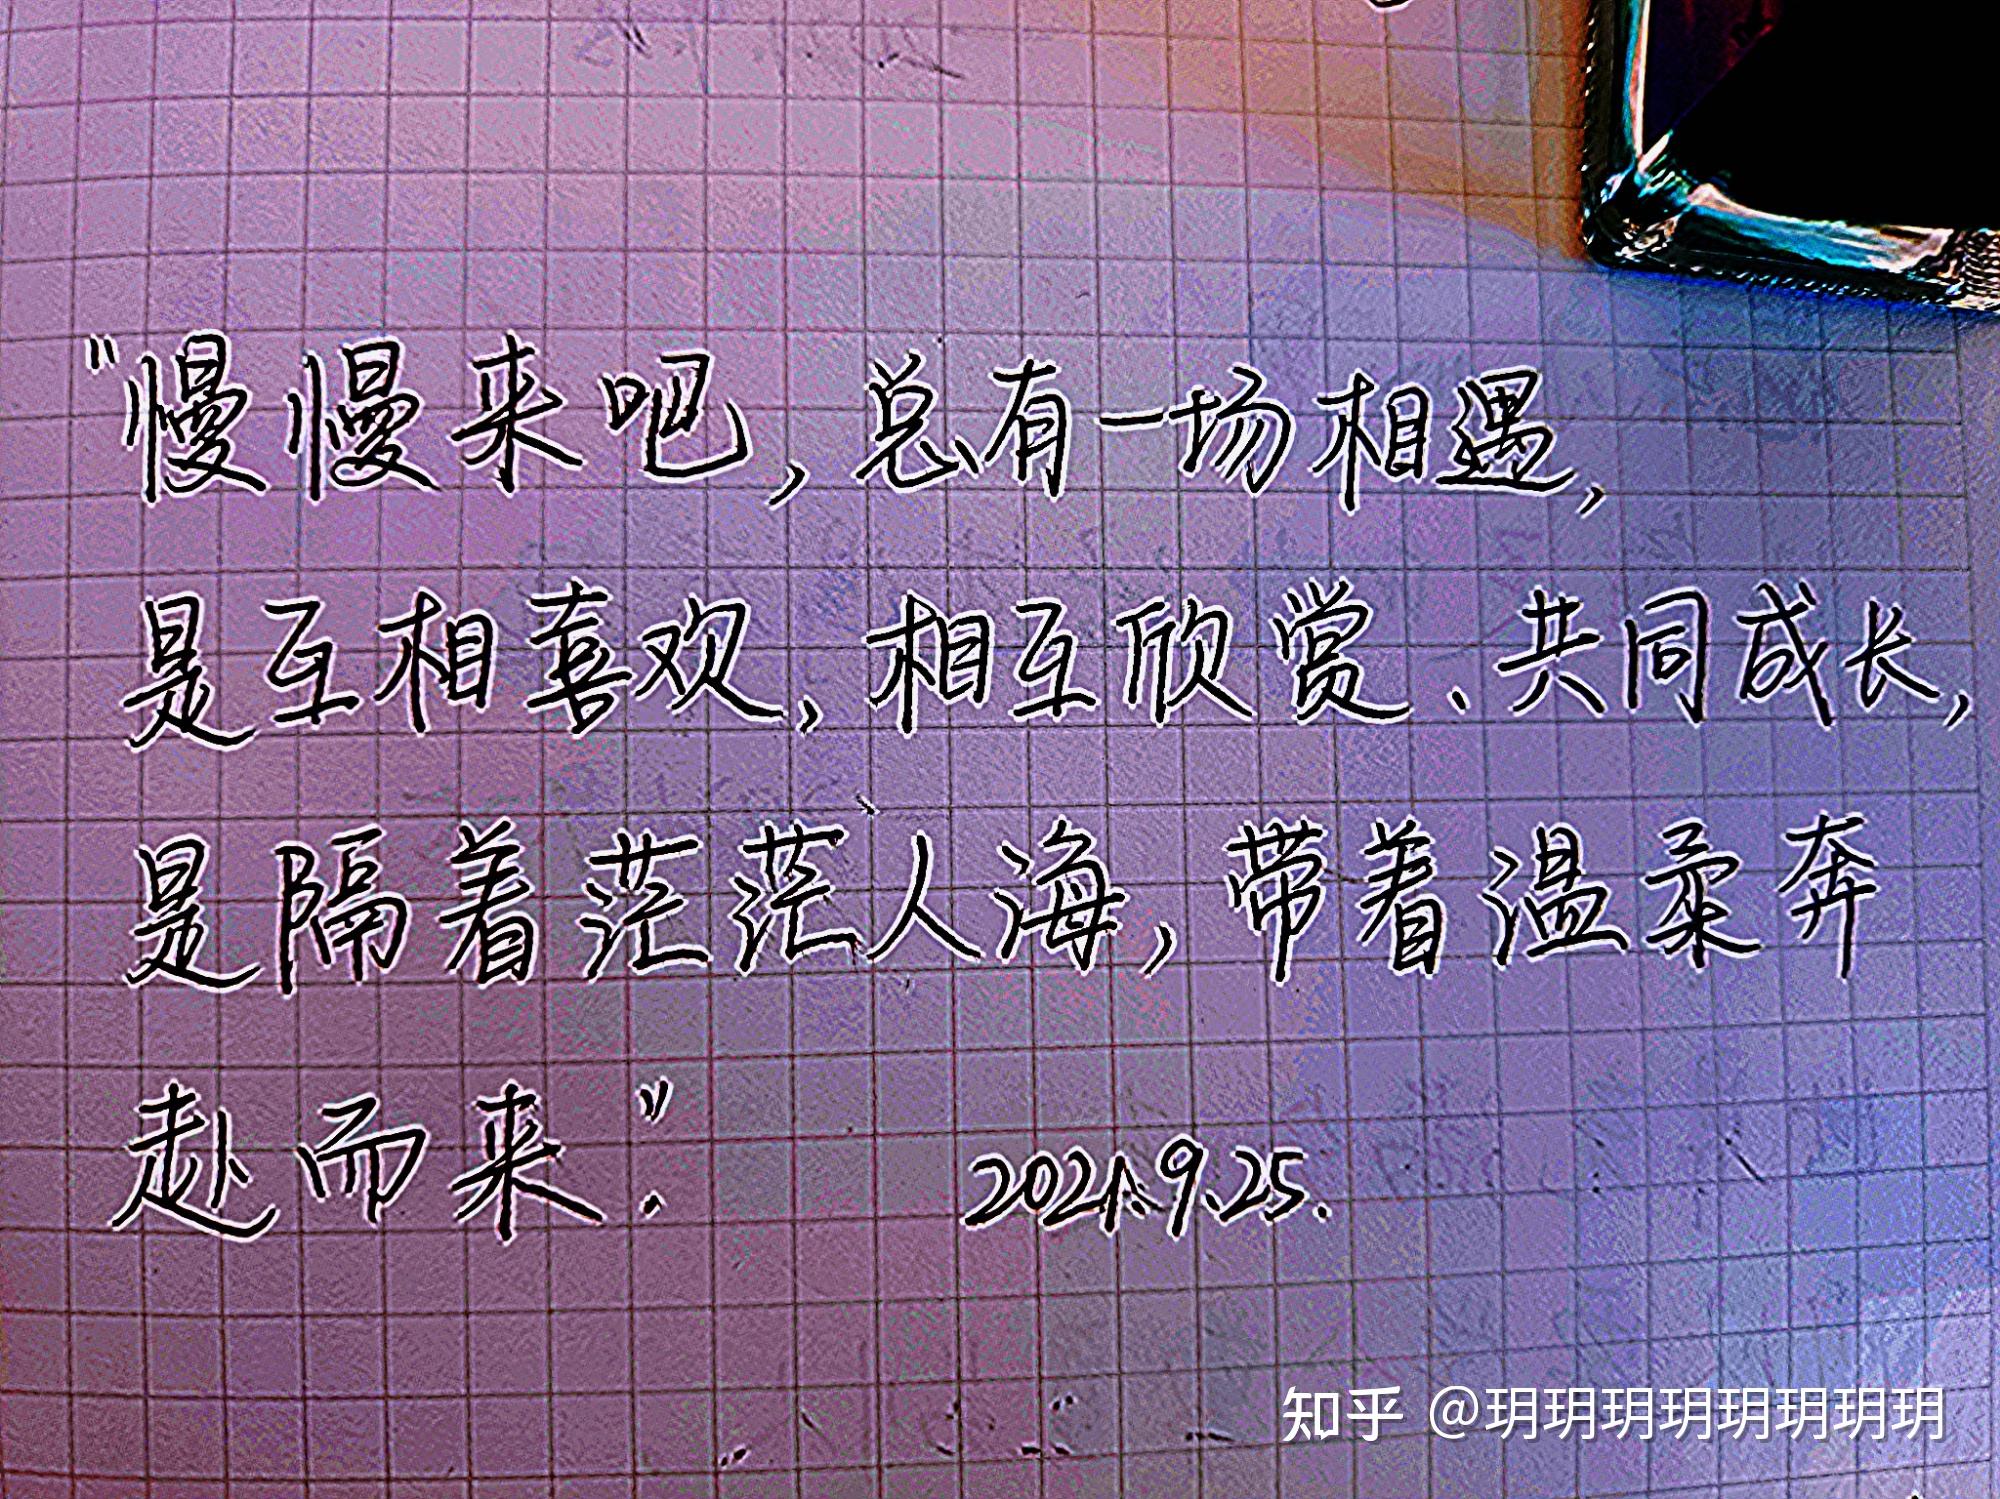 "慢慢来吧，总有一场相遇，
是互相喜欢，相互欣赏、共同成长，
是隔着茫茫人海，带着温柔奔
赴而来."
2021.9.25.
知乎 @玥玥玥玥玥玥玥玥